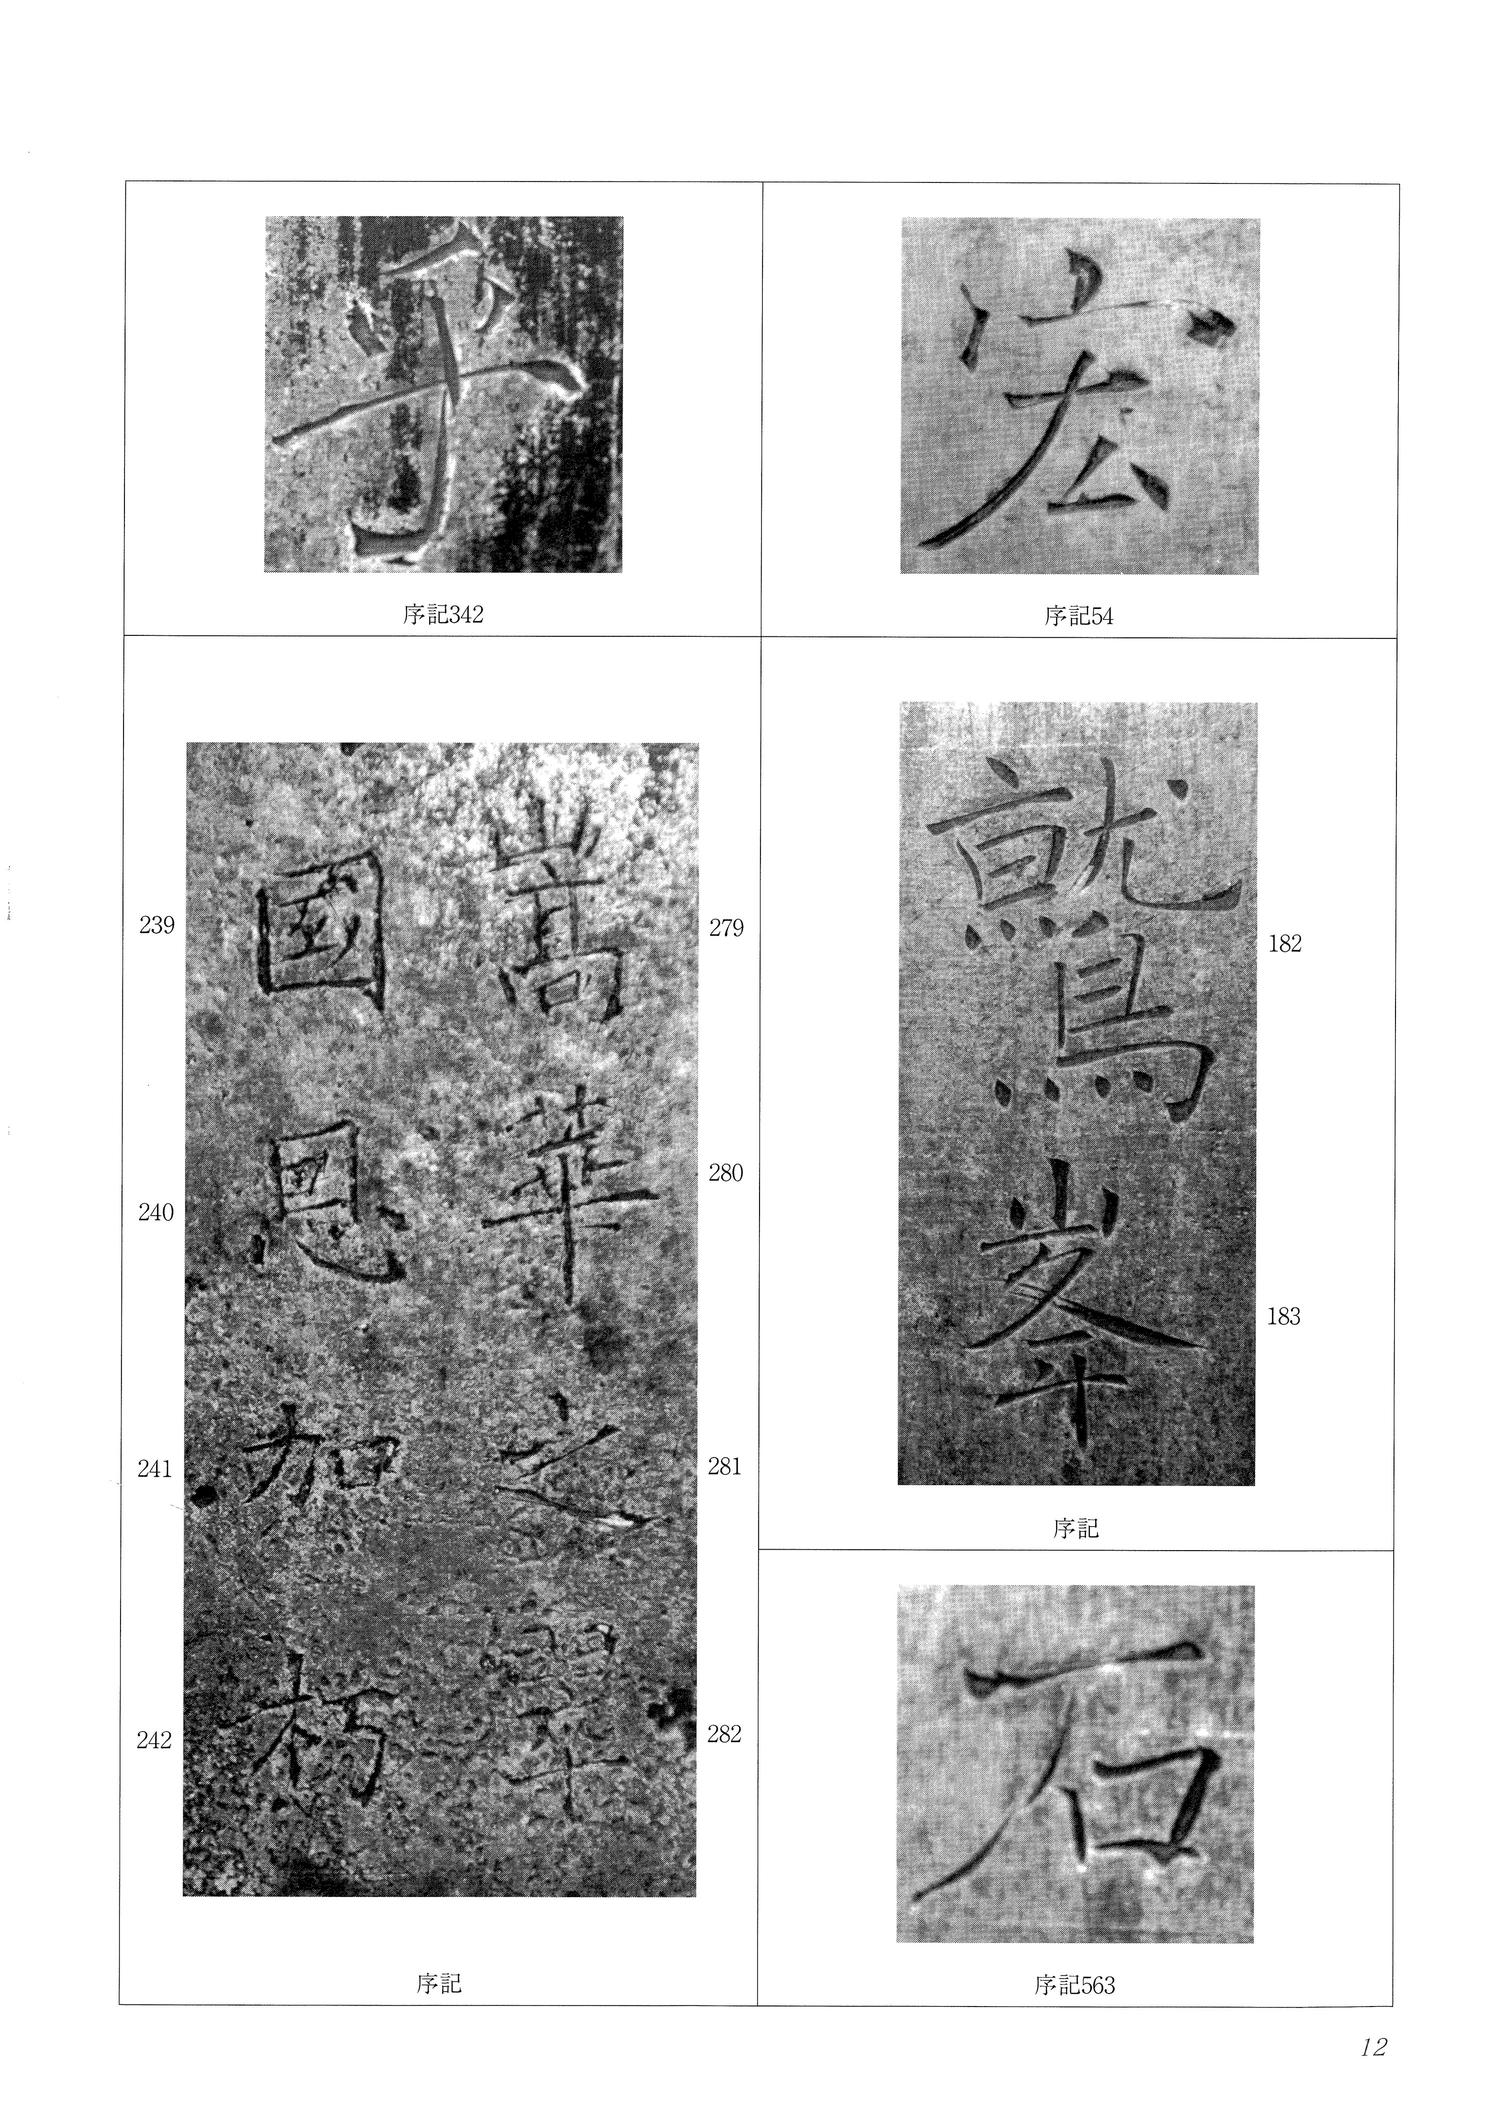 宏
序記54
鷲
182
峯
183
序記
石
序記563
乎
序記342
嵩華之翠
279
280
281
282
國恩加朽
239
240
241
242
序記
12